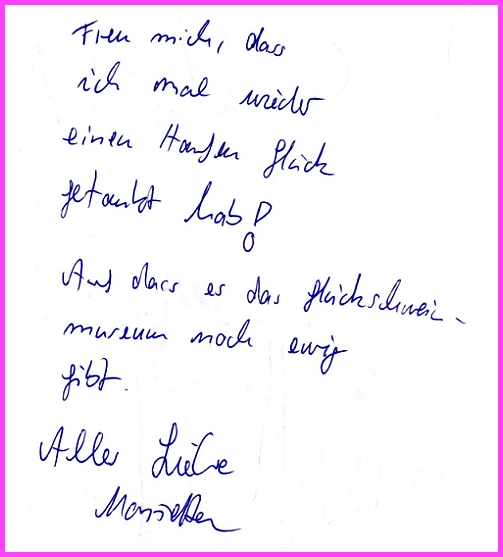 Freu mich, dass
ich mal wieder
einen Haufen Glück
getankt hab!
Auf dass es das Glückschwein-
museum noch ewig
gibt.
Alles Liebe